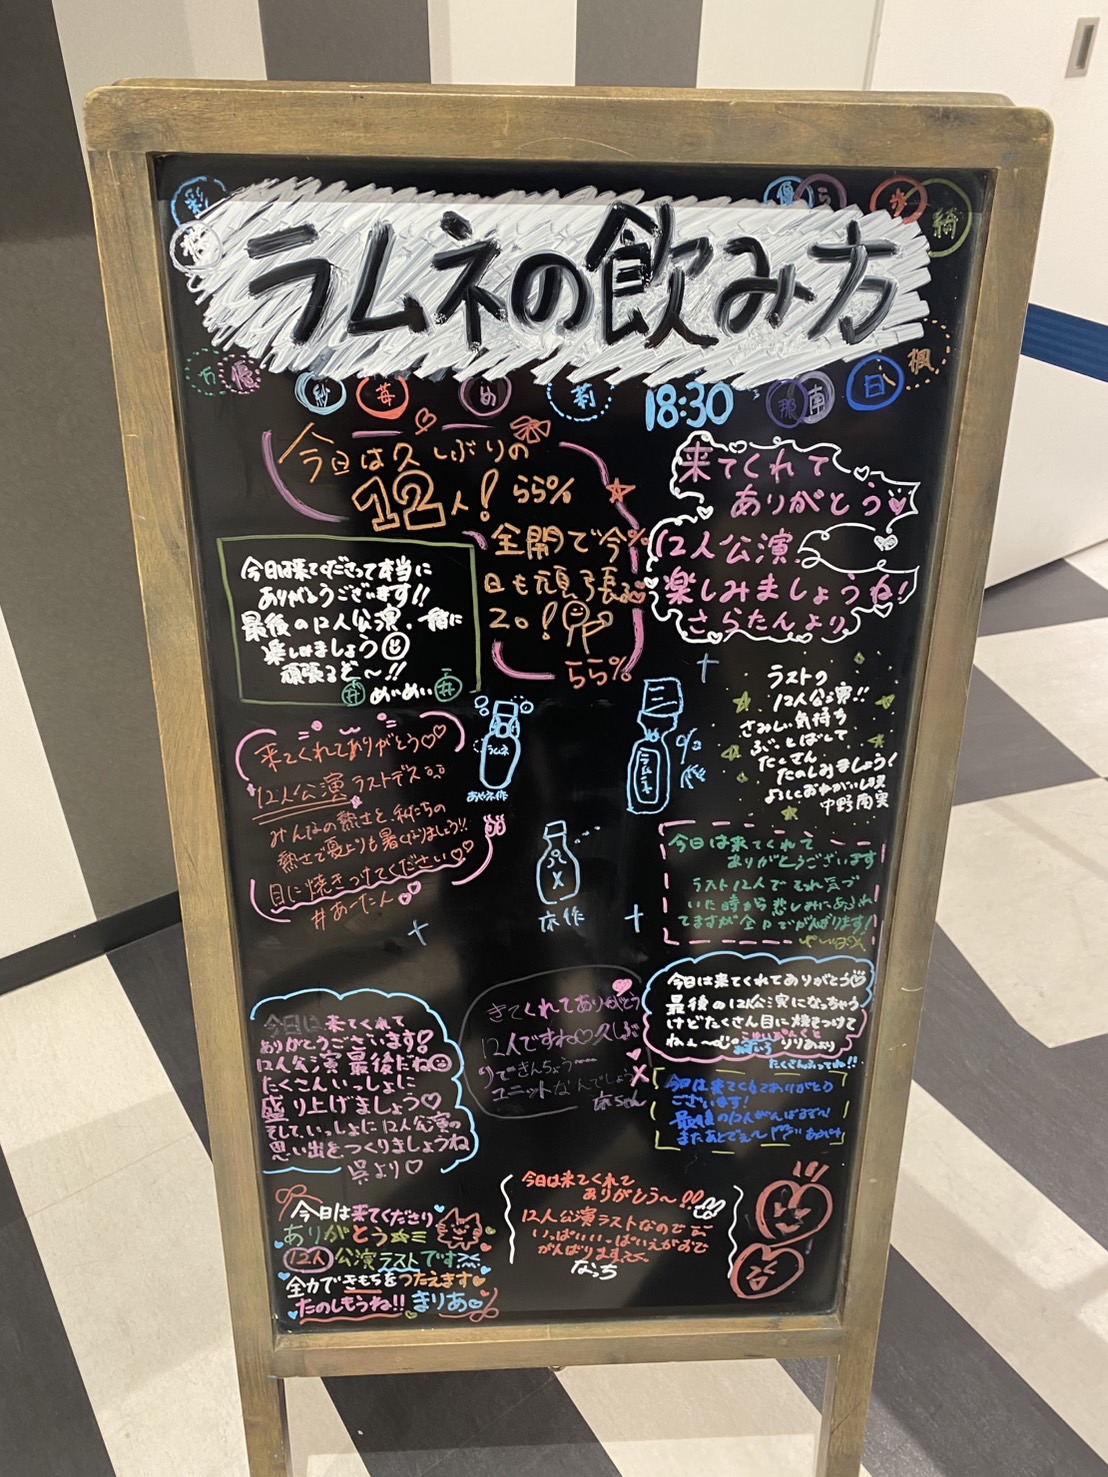 彩
優
ら
歩
綺
ラムネの飲み方
方
優
紗
苺
め
莉
18:30
那
南
日
楓
今日は久しぶりの
12人! らら%
全開で今
日も頑張る
ZO!
らら%
来てくれて
ありがとう
12人公演
楽しみましょうね!
さらたんより
今日は来てくださって本当に
ありがとうございます!!
最後の12人公演、一緒に
楽しみましょう
頑張るぞ〜!!
#めいめい#
ラストの
12人公演!!
さみしい気持ち
ふっとばして
たくさん
たのしみましょう!
よろしくおねがいします
来てくれてありがとう♡♡
12人公演ラストデス
みんなの熱さと、私たちの
熱さで夏よりも暑くなりましょう!!
目に焼きつけてください♡♡
#あーたん
ラムネ
あやネ作
ラムネ
衣作
今日は来てくれて
ありがとうございます
ラスト12人でそれ気づ
いた時から悲しみにあふれ
てますが全力でがんばります!
今日は来てくれてありがとう
最後の12人公演になっちゃう
けどたくさん目に焼きつけて
ねぇ〜
たくさんふってね!!
きてくれてありがとう
12人ですね♡久しぶ
りできんちょう〜
ユニットなんでしょう
衣ちゃん
今日は来てくれて
ありがとうございます!
12人公演最後だね
たくさんいっしょに
盛り上げましょう♡
そして、いっしょに12人公演の
思い出をつくりましょうね
呉より♡
今日は来てくれてありがとう
ございます!
最後の12人がんばるぞ〜!
またあとでぇ〜
今日は来てくださり
ありがとう
12人公演ラストです
全力できもちをつたえます
たのしもうね!! まりあ
今日は来てくれて
ありがとう〜!!
12人公演ラストなので
いっぱいいっぱいえがおで
がんばります
なっち